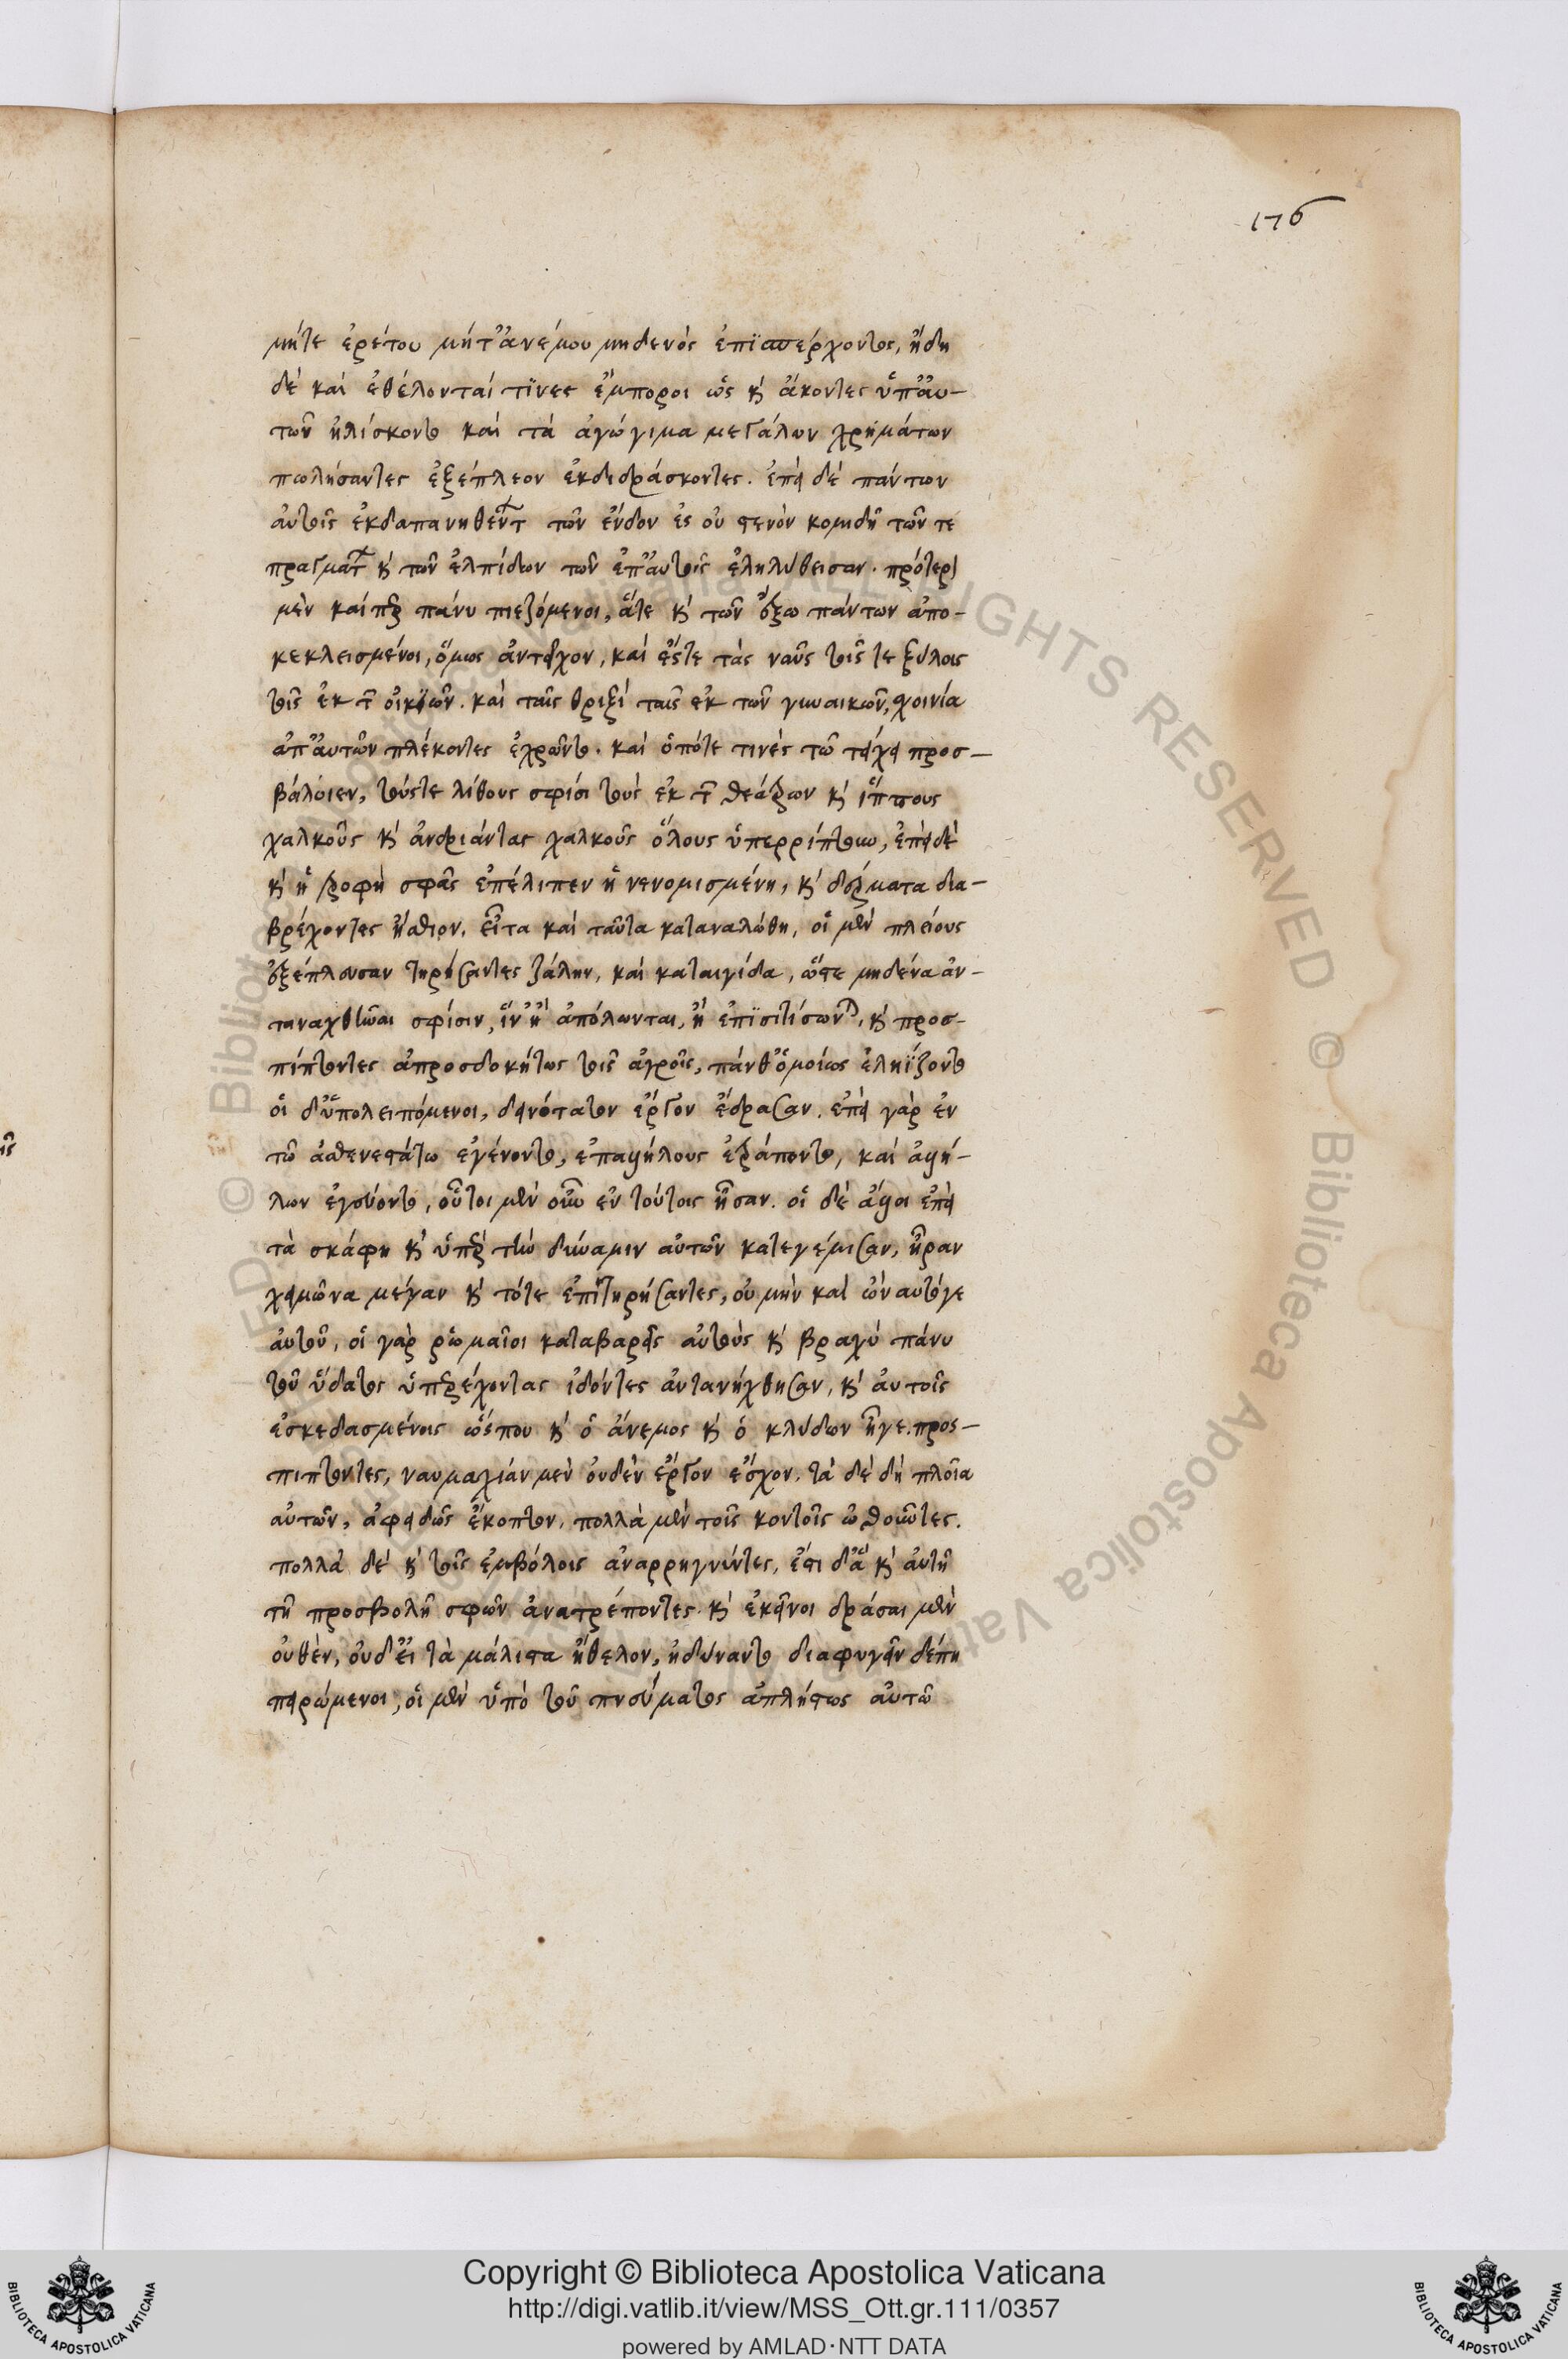 176
μήτε ἐρέτου μήτ' ἀνέμου μηδενὸς ἐπισπέρχοντος, ἤδη
δὲ καὶ ἐθέλονταί τϊνες ἔμποροι ὡς κ ἄκοντες ὑπ' αὐ-
τῶν ἡλίσκοντο καὶ τὰ ἀγώγιμα μεγάλων χρημάτων
πωλήσαντες ἐξέπλεον ἐκδιδράσκοντες. ἐπεὶ δὲ πάντων
αὐτοῖς ἐκδαπανηθέντ τῶν ἔνδον ἐς οὐ στενὸν κομιδῆ τῶν τε
πραγματ κ τῶν ἐλπίδων τῶν ἐπ' αὐτοῖς ἐληλύθεισαν. πρότερ
μὲν καίπερ πάνυ πιεζόμενοι, ἅτε κ τῶν ἔξω πάντων ἀπο-
κεκλεισμένοι, ὅμως ἀντεῖχον, καὶ ἔς τε τὰς ναῦς τοῖς τε ξύλοις
τοῖς ἐκ τ οἰκϊῶν. καὶ ταῖς θριξὶ ταῖς ἐκ τῶν γυναικῶν, σχοινία
ἀπ' αὐτῶν πλέκοντες ἐχρῶντο. καὶ ὁπότε τινὲς τῶ τείχει προσ-
βάλοιεν, τούς τε λίθους σφίσι τοὺς ἐκ τ θεάτρων κ ἵππους
χαλκοῦς κ ἀνδριάντας χαλκοῦς ὅλους ὑπερρίπτουν, ἐπεὶ δὲ
κ ἡ τροφὴ σφᾶς ἐπέλιπεν ἡ νενομισμένη, κ δέρματα δια-
βρέχοντες ἤσθιον. εἶτα καὶ ταῦτα καταναλώθη, οἱ μὲν πλείους
ἐξέπλευσαν τηρήσαντες ζάλην, καὶ καταιγίδα, ὥστε μηδένα ἀν-
ταναχθῆναι σφίσιν, ἵν' ἢ ἀπόλωνται, ἢ ἐπϊσιτίσων, κ προσ-
πίπτοντες ἀπροσδοκήτως τοῖς ἀγροῖς, πάνθ' ὁμοίως ἐληΐζοντο
οἱ δ' ὑπολειπόμενοι, δεινότατον ἔργον ἔδρασαν. ἐπεὶ γὰρ ἐν
τῶ ἀσθενεστάτω ἐγένοντο, ἐπ' ἀλλήλους ἐτράποντο, καὶ ἀλλή-
λων ἐγεύοντο, οὗτοι μὲν οὖν ἐν τούτοις ἦσαν. οἱ δὲ ἄλλοι ἐπεὶ
τὰ σκάφη κ ὑπὲρ τὴν δύναμιν αὐτῶν κατεγέμισαν, ἦραν
χειμῶνα μέγαν κ τότε ἐπιτηρήσαντες, οὐ μὴν καὶ ὤναντό γε
αὐτοῦ, οἱ γὰρ ῥωμαῖοι καταβαρεῖς αὐτοὺς κ βραχὺ πάνυ
τοῦ ὕδατος ὑπερέχοντας ἰδόντες ἀντανήχθησαν, κ αὐτοῖς
ἐσκεδασμένοις ὥς που κ ὁ ἄνεμος κ ὁ κλύδων ἦγε. προσ-
πίπτοντες, ναυμαχίαν μὲν οὐδὲν ἔργον ἔσχον, τὰ δὲ δὴ πλοῖα
αὐτῶν, ἀφειδῶς ἔκοπτον, πολλὰ μὲν τοῖς κοντοῖς ὠθοῦντες.
πολλὰ δὲ κ τοῖς ἐμβόλοις ἀναρρηγνύντες, ἔστι δ' ἃ κ αὐτῆ
τῆ προσβολῆ σφῶν ἀνατρέποντες. κ ἐκεῖνοι δρᾶσαι μὲν
οὐθὲν, οὐδ' εἰ τὰ μάλιστα ἤθελον, ἠδύναντο διαφυγεῖν δέ πη
πειρώμενοι, οἱ μὲν ὑπὸ τοῦ πνεύματος ἀπλήστως αὐτῶ
Copyright © Biblioteca Apostolica Vaticana
http://digi.vatlib.it/view/MSS_Ott.gr.111/0357
powered by AMLAD·NTT DATA